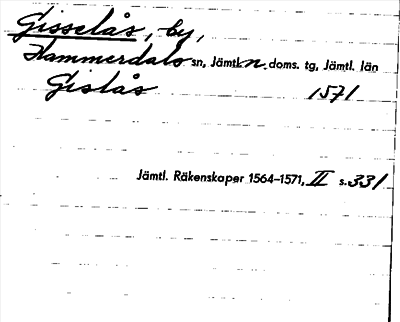 Gisselås, by,
Hammerdals sn, Jämtl. n. doms. tg, Jämtl. län
Gislås 1571
Jämtl. Räkenskaper 1564–1571, II s. 331